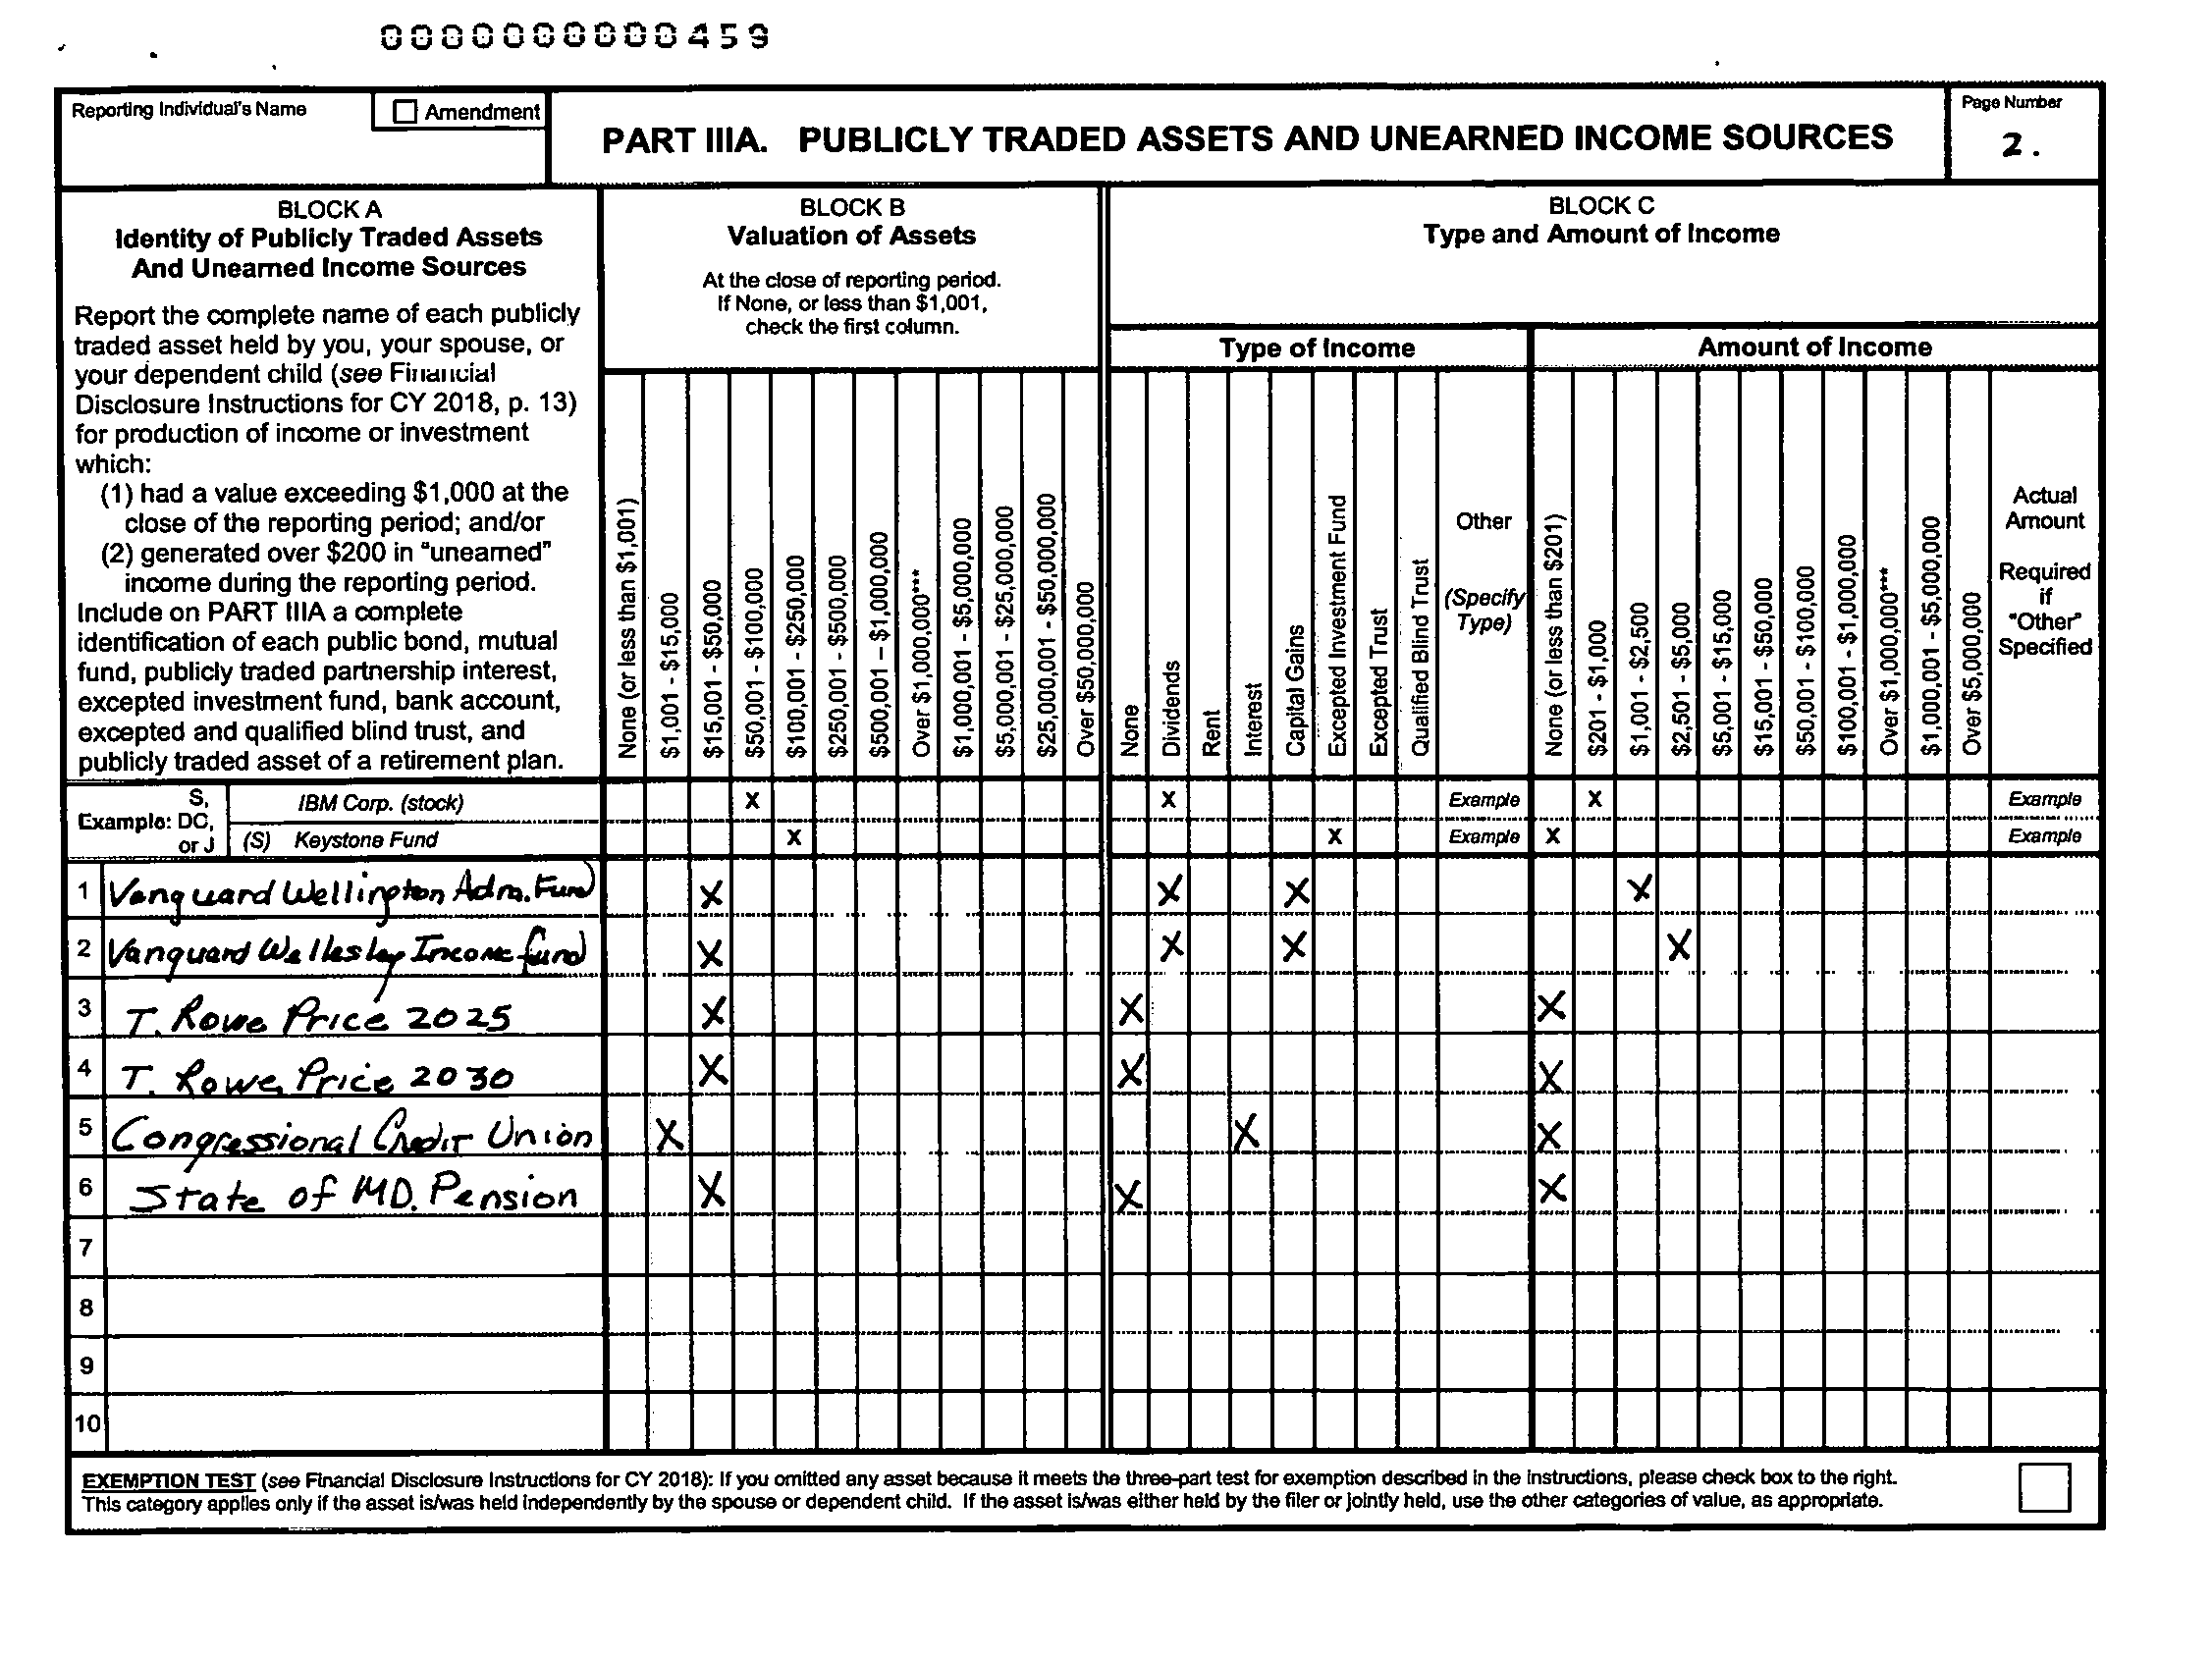 0000000000459
Reporting Individual's Name
☐ Amendment
PART IIIA. PUBLICLY TRADED ASSETS AND UNEARNED INCOME SOURCES
Page Number
2.
BLOCK A
Identity of Publicly Traded Assets
And Unearned Income Sources
Report the complete name of each publicly
traded asset held by you, your spouse, or
your dependent child (see Financial
Disclosure Instructions for CY 2018, p. 13)
for production of income or investment
which:
(1) had a value exceeding $1,000 at the
close of the reporting period; and/or
(2) generated over $200 in "unearned"
income during the reporting period.
Include on PART IIIA a complete
identification of each public bond, mutual
fund, publicly traded partnership interest,
excepted investment fund, bank account,
excepted and qualified blind trust, and
publicly traded asset of a retirement plan.
BLOCK B
Valuation of Assets
At the close of reporting period.
If None, or less than $1,001,
check the first column.
None (or less than $1,001)
$1,001 - $15,000
$15,001 - $50,000
$50,001 - $100,000
$100,001 - $250,000
$250,001 - $500,000
$500,001 – $1,000,000
Over $1,000,000***
$1,000,001 - $5,000,000
$5,000,001 - $25,000,000
$25,000,001 - $50,000,000
Over $50,000,000
BLOCK C
Type and Amount of Income
Type of Income
None
Dividends
Rent
Interest
Capital Gains
Excepted Investment Fund
Excepted Trust
Qualified Blind Trust
Other
(Specify
Type)
Amount of Income
None (or less than $201)
$201 - $1,000
$1,001 - $2,500
$2,501 - $5,000
$5,001 - $15,000
$15,001 - $50,000
$50,001 - $100,000
$100,001 - $1,000,000
Over $1,000,000***
$1,000,001 - $5,000,000
Over $5,000,000
Actual
Amount
Required
if
"Other"
Specified
Example: S,
DC,
or J
IBM Corp. (stock) X X Example X Example
(S) Keystone Fund X X Example X Example
1 Vanguard Wellington Adm. Fund X X X X
2 Vanguard Wellesley Income fund X X X X
3 T. Rowe Price 2025 X X X
4 T. Rowe Price 2030 X X X
5 Congressional Credit Union X X X
6 State of MD. Pension X X X
7
8
9
10
EXEMPTION TEST (see Financial Disclosure Instructions for CY 2018): If you omitted any asset because it meets the three-part test for exemption described in the instructions, please check box to the right.
This category applies only if the asset is/was held independently by the spouse or dependent child. If the asset is/was either held by the filer or jointly held, use the other categories of value, as appropriate.